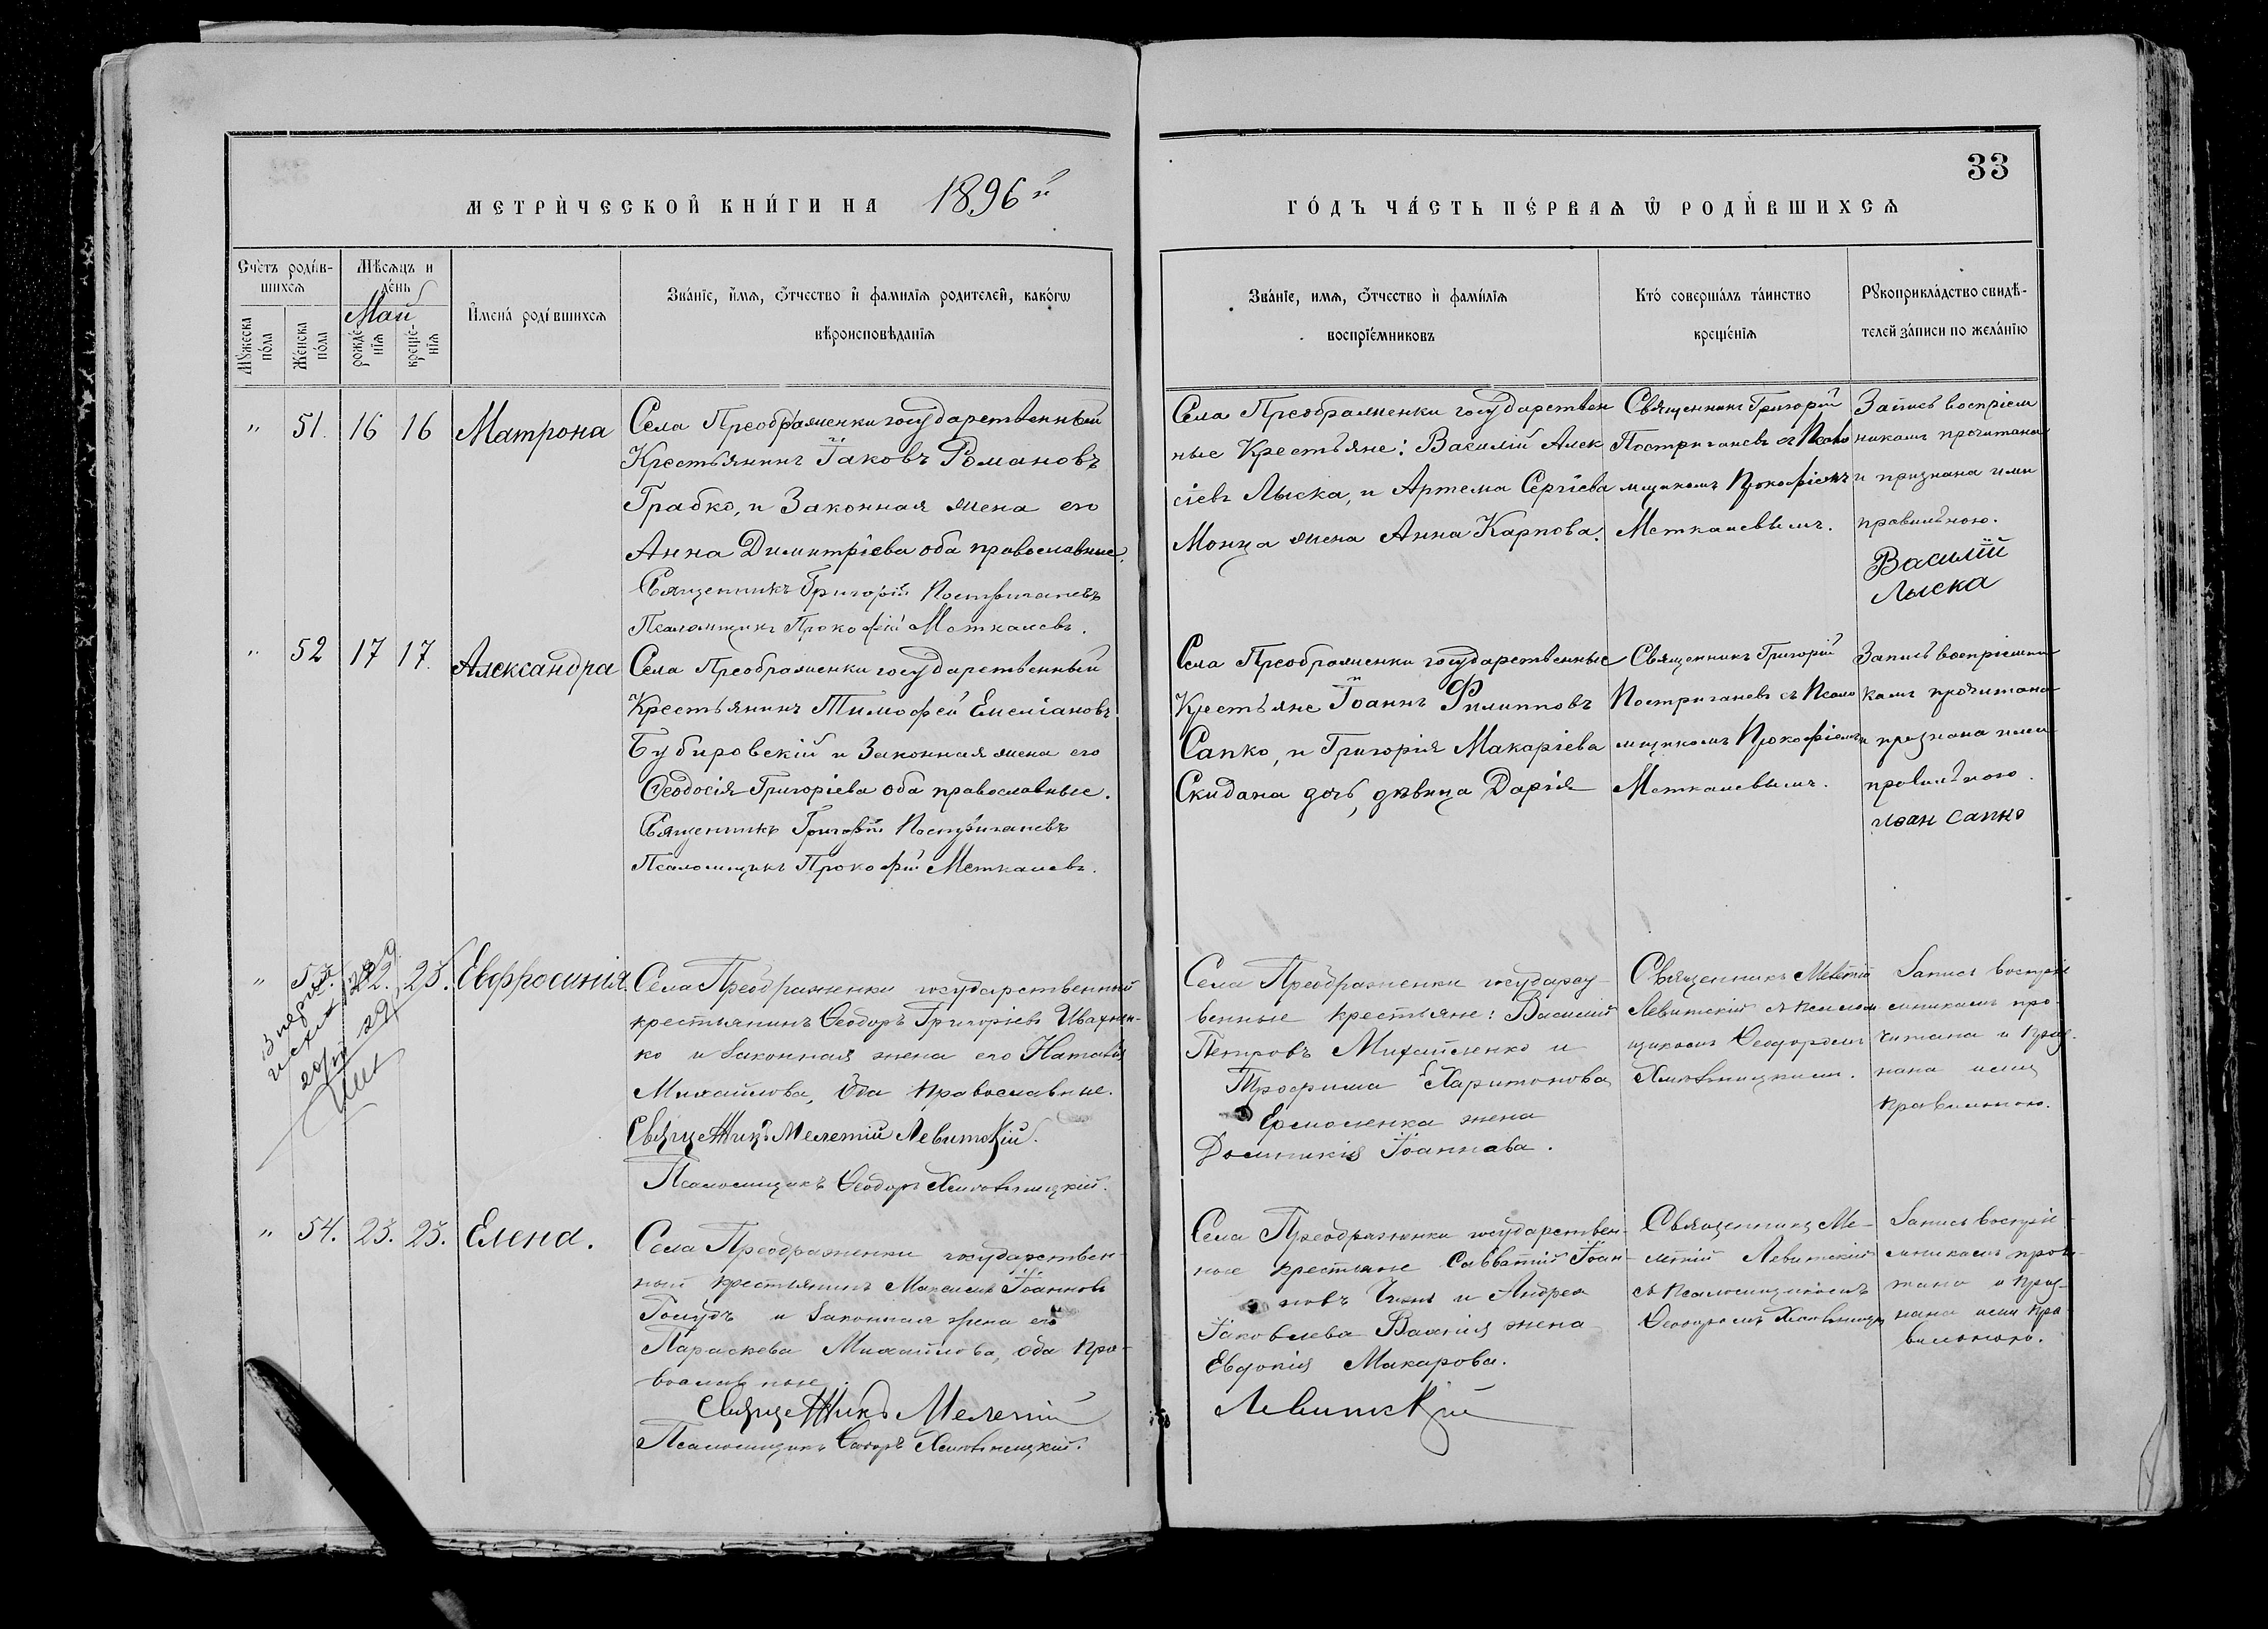 33
МЕТРИ́ЧЕСКОЙ КНИ́ГИ НА 1896й
ГО́ДЪ ЧА́СТЬ ПЕ́РВАѦ Ѿ РОДИ́ВШИХСѦ
Сче́тъ роди́в-
шихсѧ
Мѣ́сѧцъ и
де́нь
Май
Мꙋ́жеска
по́ла
Же́нска
по́ла
рожде́-
нїѧ
креще́-
нїѧ
И҆мена̀ роди́вшихсѧ
Зва́нїе, и҆́мѧ, ѻ҆́тчество и҆ фами́лїѧ роди́телей, како́гѡ
вѣроисповѣ́данїѧ
Зва́нїе, и҆́мѧ, ѻ҆́тчество и҆ фами́лїѧ
воспрїе́мниковъ
Кто̀ соверша́лъ та́инство
креще́нїѧ
Рꙋкоприкла́дство свидѣ́-
телей за́писи по жела́нїю
" 51. 16 16 Матрона
Села Преображенки государственный
Крестьянинъ Іаковъ Романовъ
Грабко, и Законная жена его
Анна Димитріева оба православные.
Священникъ Григорій Постригачевъ
Псаломщикъ Прокофій Меткалевъ.
Села Преображенки государствен
ные Крестьяне: Василій Алек
сіевъ Лыска, и Артема Сергіева
жена Анна Карпова.
Священникъ Григорій
Постригачевъ съ Псало
мщикомъ Прокофіемъ
Меткалевымъ.
Запись воспріем
никамъ прочитана
и признана ими
правильною.
Василій
Лыска
" 52 17 17. Александра
Села Преображенки государственный
Крестьянинъ Тимофей Емеліановъ
Бубировскій и Законная жена его
Ѳеодосія Григоріева оба православные.
Священникъ Григорій Постригачевъ
Псаломщикъ Прокофій Меткалевъ.
Села Преображенки государственные
Крестьяне Іоаннъ Филипповъ
Сапко, и Григорія Макаріева
Скидана дочь, дѣвица Дарія
Священникъ Григорій
Постригачевъ съ Псало
мщикомъ Прокофіемъ
Меткалевымъ.
Запись воспріемни
камъ прочитана
и признана ими
правильною.
иоан сапко
" 53. 22. 23. Евфросинія.
Села Преображенки государственный
крестьянинъ Ѳеодоръ Григоріевъ Ивахнен-
ко и законная жена его Наталія
Михайлова, оба православные.
Священникъ Мелетій Левитскій.
Псаломщикъ Ѳеодоръ
Села Преображенки государст-
венные крестьяне: Василій
Петровъ Михайленко и
Трофима Харитонова
Ермоленка жена
Домникія Іоаннова.
Священникъ Мелетій
Левитскій съ псалом
щикомъ Ѳеодоромъ
Запись воспріе
мникамъ про-
читана и приз-
нана ими
правильною.
" 54. 23. 23. Елена.
Села Преображенки государствен-
ный крестьянинъ Максимъ Іоанновъ
Голубъ и законная жена его
Параскева Михайлова, оба пра-
вославные.
Священникъ Мелетій
Псаломщикъ Ѳеодоръ
Села Преображенки государствен-
ные крестьяне Савватій Іоан-
новъ и Андрея
Іаковлева жена
Евдокія Макарова.
Левитскій
Священникъ Ме-
летій Левитскій
съ псаломщикомъ
Ѳеодоромъ
Запись воспріе
мникамъ прочи-
тана и приз-
нана ими пра
вильною.